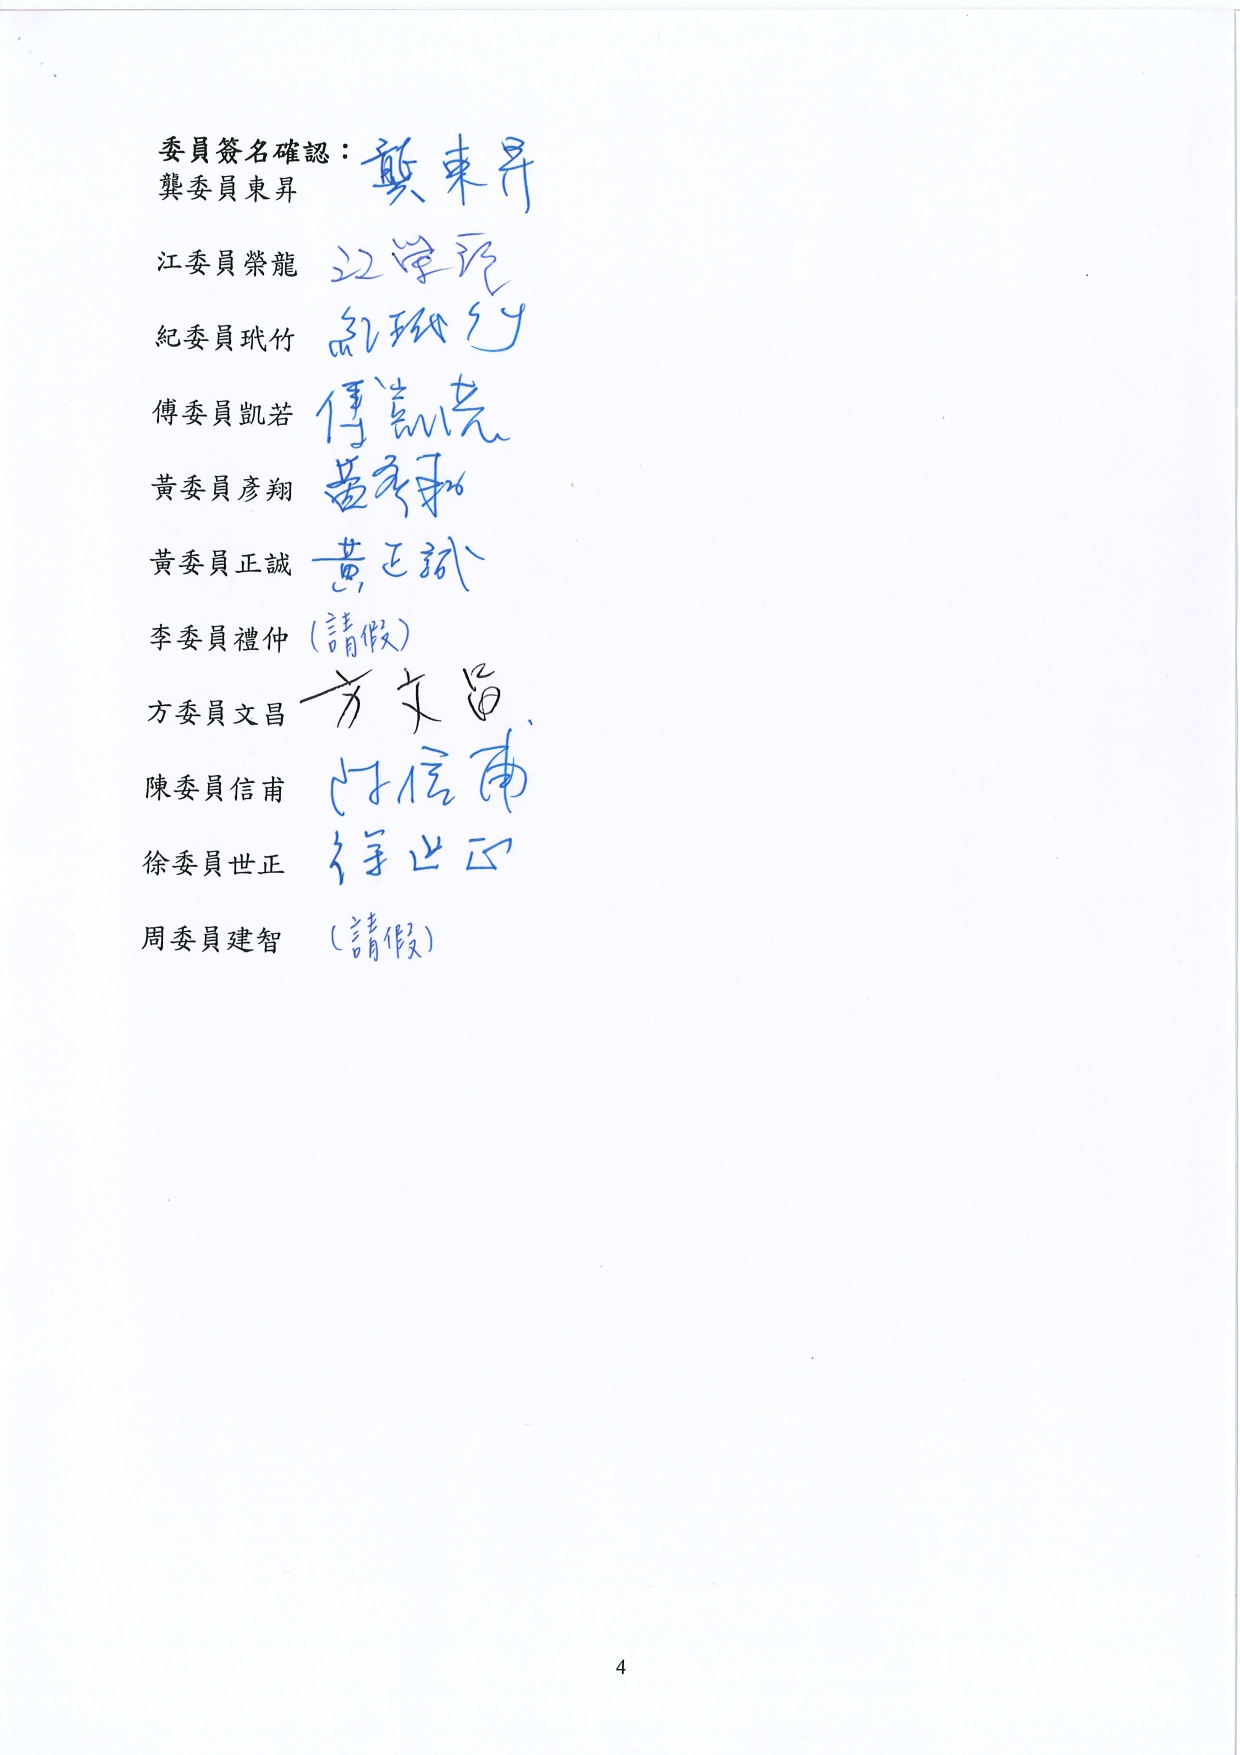 委員簽名確認：龔東昇
龔委員東昇
江委員榮龍 江榮龍
紀委員玳竹 紀玳竹
傅委員凱若 傅凱若
黃委員彥翔 黃彥翔
黃委員正誠 黃正誠
李委員禮仲 (請假)
方委員文昌 方文昌
陳委員信甫 陳信甫
徐委員世正 徐世正
周委員建智 (請假)
4